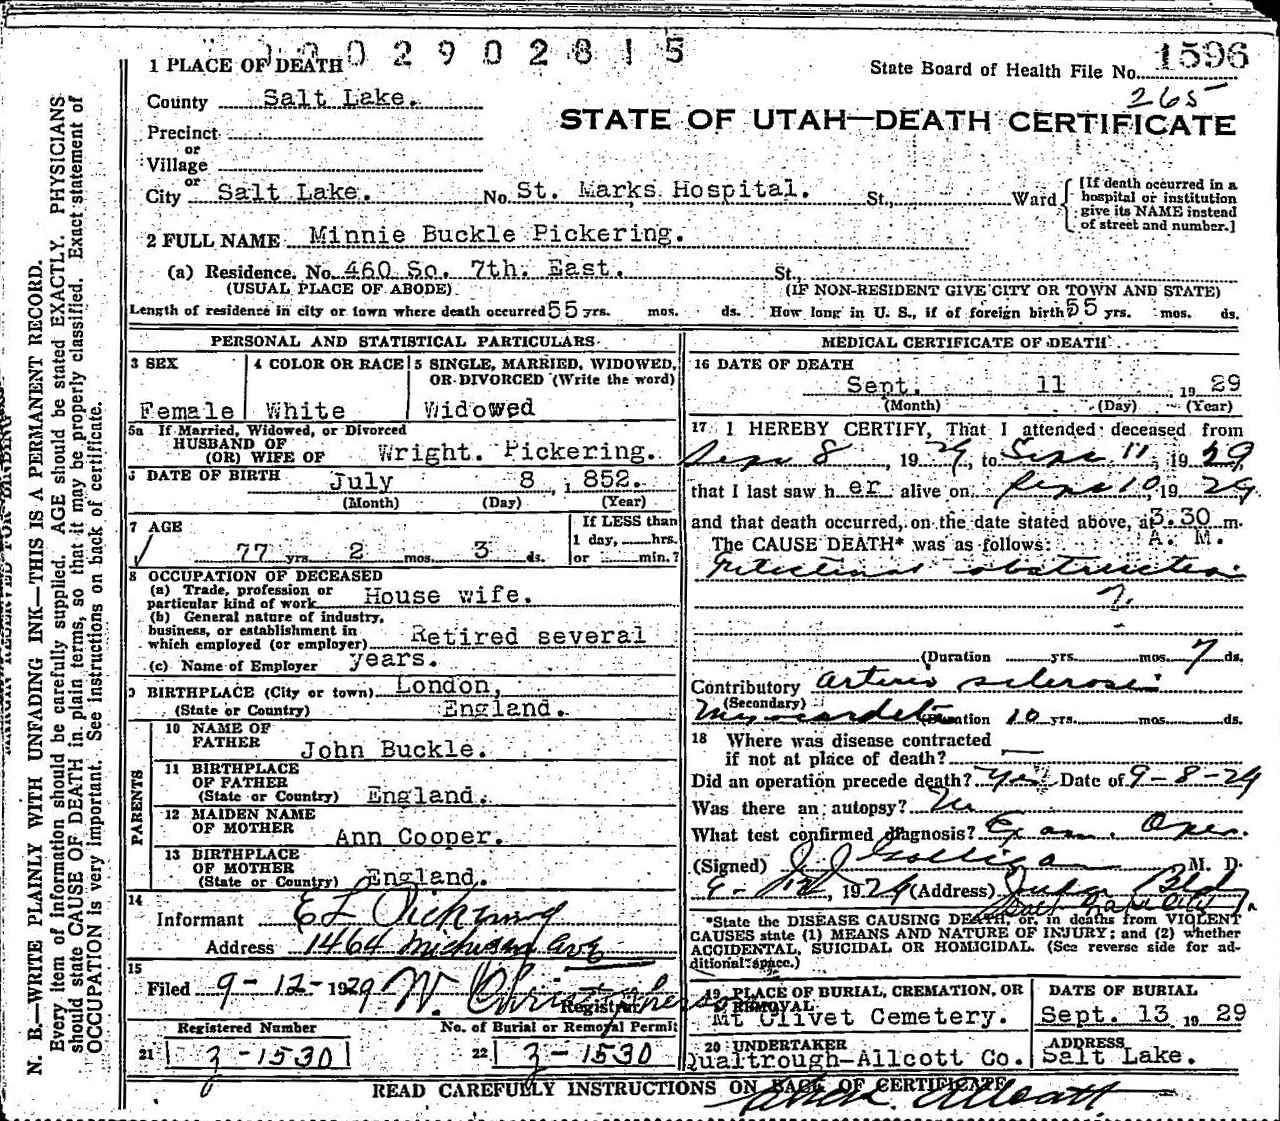 0002902815
1 PLACE OF DEATH
State Board of Health File No. 1596
265
County Salt Lake.
STATE OF UTAH—DEATH CERTIFICATE
Precinct
or
Village
or
City Salt Lake. No. St. Marks Hospital. St., Ward
[If death occurred in a hospital or institution give its NAME instead of street and number.]
2 FULL NAME Minnie Buckle Pickering.
(a) Residence. No. 460 So. 7th. East. St.
(USUAL PLACE OF ABODE) (IF NON-RESIDENT GIVE CITY OR TOWN AND STATE)
Length of residence in city or town where death occurred 55 yrs. mos. ds. How long in U. S., if of foreign birth 55 yrs. mos. ds.
PERSONAL AND STATISTICAL PARTICULARS
3 SEX
Female
4 COLOR OR RACE
White
5 SINGLE, MARRIED, WIDOWED, OR DIVORCED (Write the word)
Widowed
5a If Married, Widowed, or Divorced
HUSBAND OF
(OR) WIFE OF Wright. Pickering.
DATE OF BIRTH July 8, 1852.
(Month) (Day) (Year)
7 AGE
77 yrs. 2 mos. 3 ds.
If LESS than 1 day, hrs. or min.?
8 OCCUPATION OF DECEASED
(a) Trade, profession or particular kind of work House wife.
(b) General nature of industry, business, or establishment in which employed (or employer) Retired several years.
(c) Name of Employer
9 BIRTHPLACE (City or town) London,
(State or Country) England.
PARENTS
10 NAME OF FATHER John Buckle.
11 BIRTHPLACE OF FATHER
(State or Country) England.
12 MAIDEN NAME OF MOTHER Ann Cooper.
13 BIRTHPLACE OF MOTHER
(State or Country) England.
14
Informant E L Pickering
Address 1464 Michigan Ave
15
Filed 9-12-1929 W. Christopherson
Registrar
Registered Number No. of Burial or Removal Permit
21 3-1530 22 3-1530
MEDICAL CERTIFICATE OF DEATH
16 DATE OF DEATH
Sept. 11 1929
(Month) (Day) (Year)
17 I HEREBY CERTIFY, That I attended deceased from
Sept 8, 1929, to Sept 11, 1929
that I last saw her alive on Sept 10, 1929
and that death occurred, on the date stated above, at 3.30 m.
The CAUSE DEATH* was as follows: A. M.
Intestinal obstruction
(Duration yrs. mos. 7 ds.
Contributory Arterio sclerosis
(Secondary)
Myocarditis (Duration 10 yrs. mos. ds.
18 Where was disease contracted if not at place of death?
Did an operation precede death? Yes Date of 9-8-29
Was there an autopsy? No
What test confirmed diagnosis? Exam. Oper.
(Signed) J J Galligan M. D.
9-12, 1929 (Address) Judge Bld
Salt Lake City
*State the DISEASE CAUSING DEATH, or, in deaths from VIOLENT
CAUSES state (1) MEANS AND NATURE OF INJURY; and (2) whether
ACCIDENTAL, SUICIDAL OR HOMICIDAL. (See reverse side for ad-
ditional space.)
19 PLACE OF BURIAL, CREMATION, OR REMOVAL
Mt Olivet Cemetery.
DATE OF BURIAL
Sept. 13 1929
20 UNDERTAKER
Qualtrough-Allcott Co.
ADDRESS
Salt Lake.
READ CAREFULLY INSTRUCTIONS ON BACK OF CERTIFICATE
N. B.—WRITE PLAINLY WITH UNFADING INK—THIS IS A PERMANENT RECORD.
Every item of information should be carefully supplied. AGE should be stated EXACTLY. PHYSICIANS
should state CAUSE OF DEATH in plain terms, so that it may be properly classified. Exact statement of
OCCUPATION is very important. See instructions on back of certificate.
MARGIN RESERVED FOR BINDING